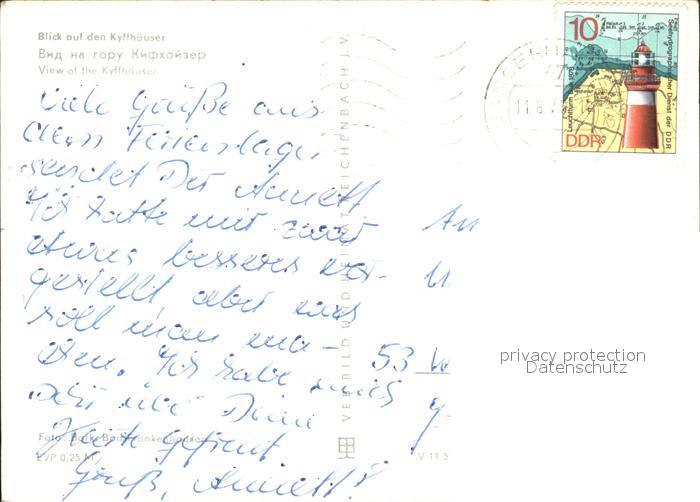 Blick auf den Kyffhäuser
Вид на гору Кифхойзер
View of the Kyffhäuser
Viele Grüße aus
dem Ferienlager
sendet Dir Annett
Ich hatte mir zwar
etwas besseres vor-
gestellt aber was
soll man ma-
chen. Ich habe mich
sehr über Deine
Karte gefreut
Gruß, Annett
An
53
Foto:
EVP 0,25 M
V 11 5
VEB BILD UND HEIMAT REICHENBACH i. V.
SANGERHA
77
11.8.7
10
DDR
Seehydrographischer Dienst der DDR
Leuchtturm
privacy protection
Datenschutz